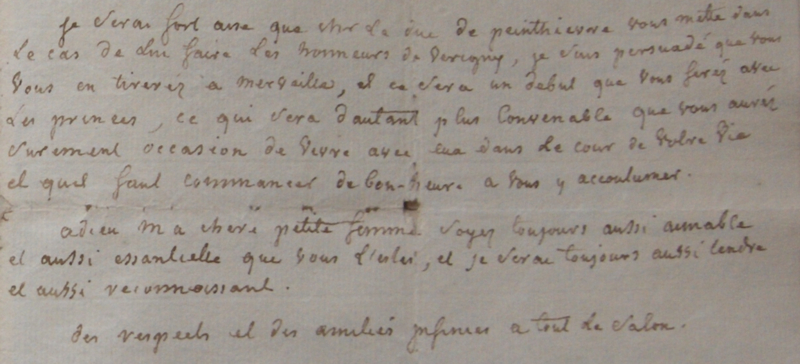 je serai fort aise que chr Le duc de peinthievre vous mette dans
Le cas de Lui faire Les honneurs de verigny, je suis persuadé que vous
vous en tireréz a merveille, et ce sera un debut que vous feréz avec
Les princes, ce qui sera d'autant plus Convenable que vous auréz
surement occasion de vivre avec eux dans Le cour de votre vie
et quil faut commancer de bon-heure a vous y accoutumer.
adieu ma chere petite femme soyez toujours aussi aimable
et aussi essantielle que vous L'estes, et je serai toujours aussi tendre
et aussi reconnoissant.
des respects et des amitiés infinies a tout Le salon.